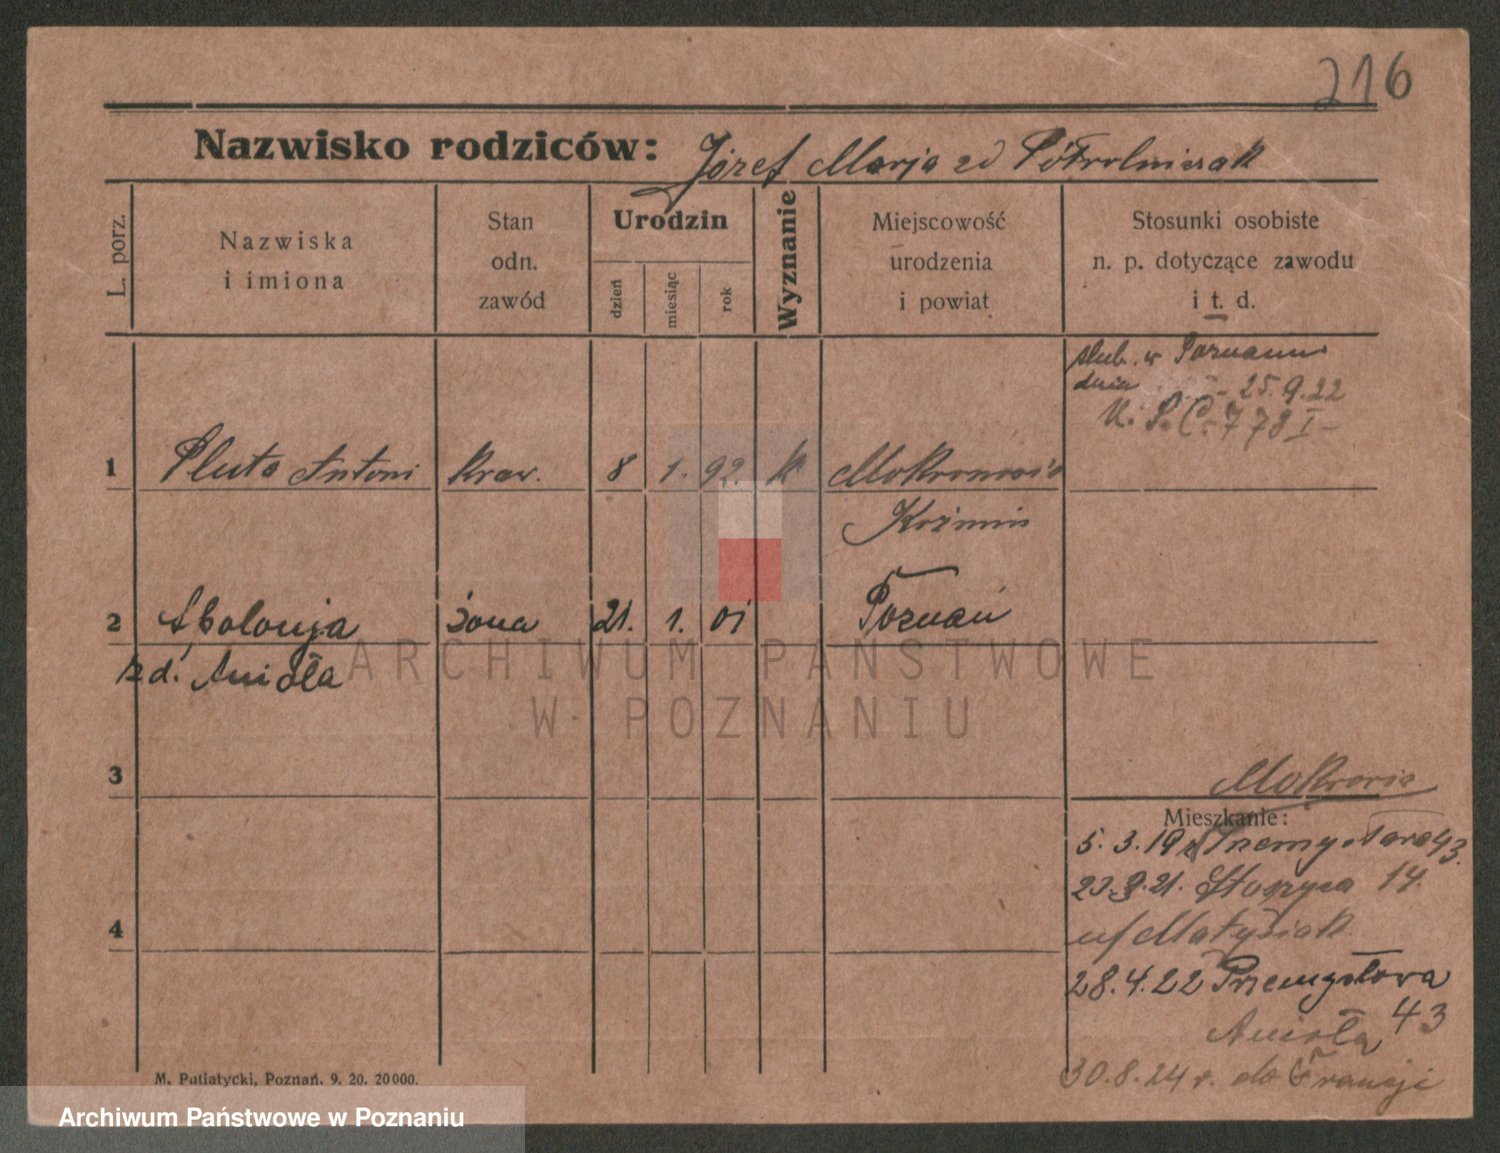 216
Nazwisko rodziców: Józef Marja zd Półrolniczak
L. porz.
Nazwiska
i imiona
Stan
odn.
zawód
Urodzin
dzień
miesiąc
rok
Wyznanie
Miejscowość
urodzenia
i powiat
Stosunki osobiste
n. p. dotyczące zawodu
i t. d.
slub. w Poznaniu
dnia 25.9.22
U. S. C. 778 I
1 Pluta Antoni kraw. 8 1. 92. k Mokronos
Koźmin
2 Apolonja żona 21. 1. 01 Poznań
zd. Anioła
ARCHIWUM PAŃSTWOWE
W POZNANIU
3
Mieszkanie:
5.3.19 Przemysłowa 43.
23.9.21. 14.
u/ Matysiak
4
28.4.22 Przemysłowa
43
Anioła
30.8.24 r. do Francji
M. Putiatycki, Poznań. 9. 20. 20000.
Archiwum Państwowe w Poznaniu